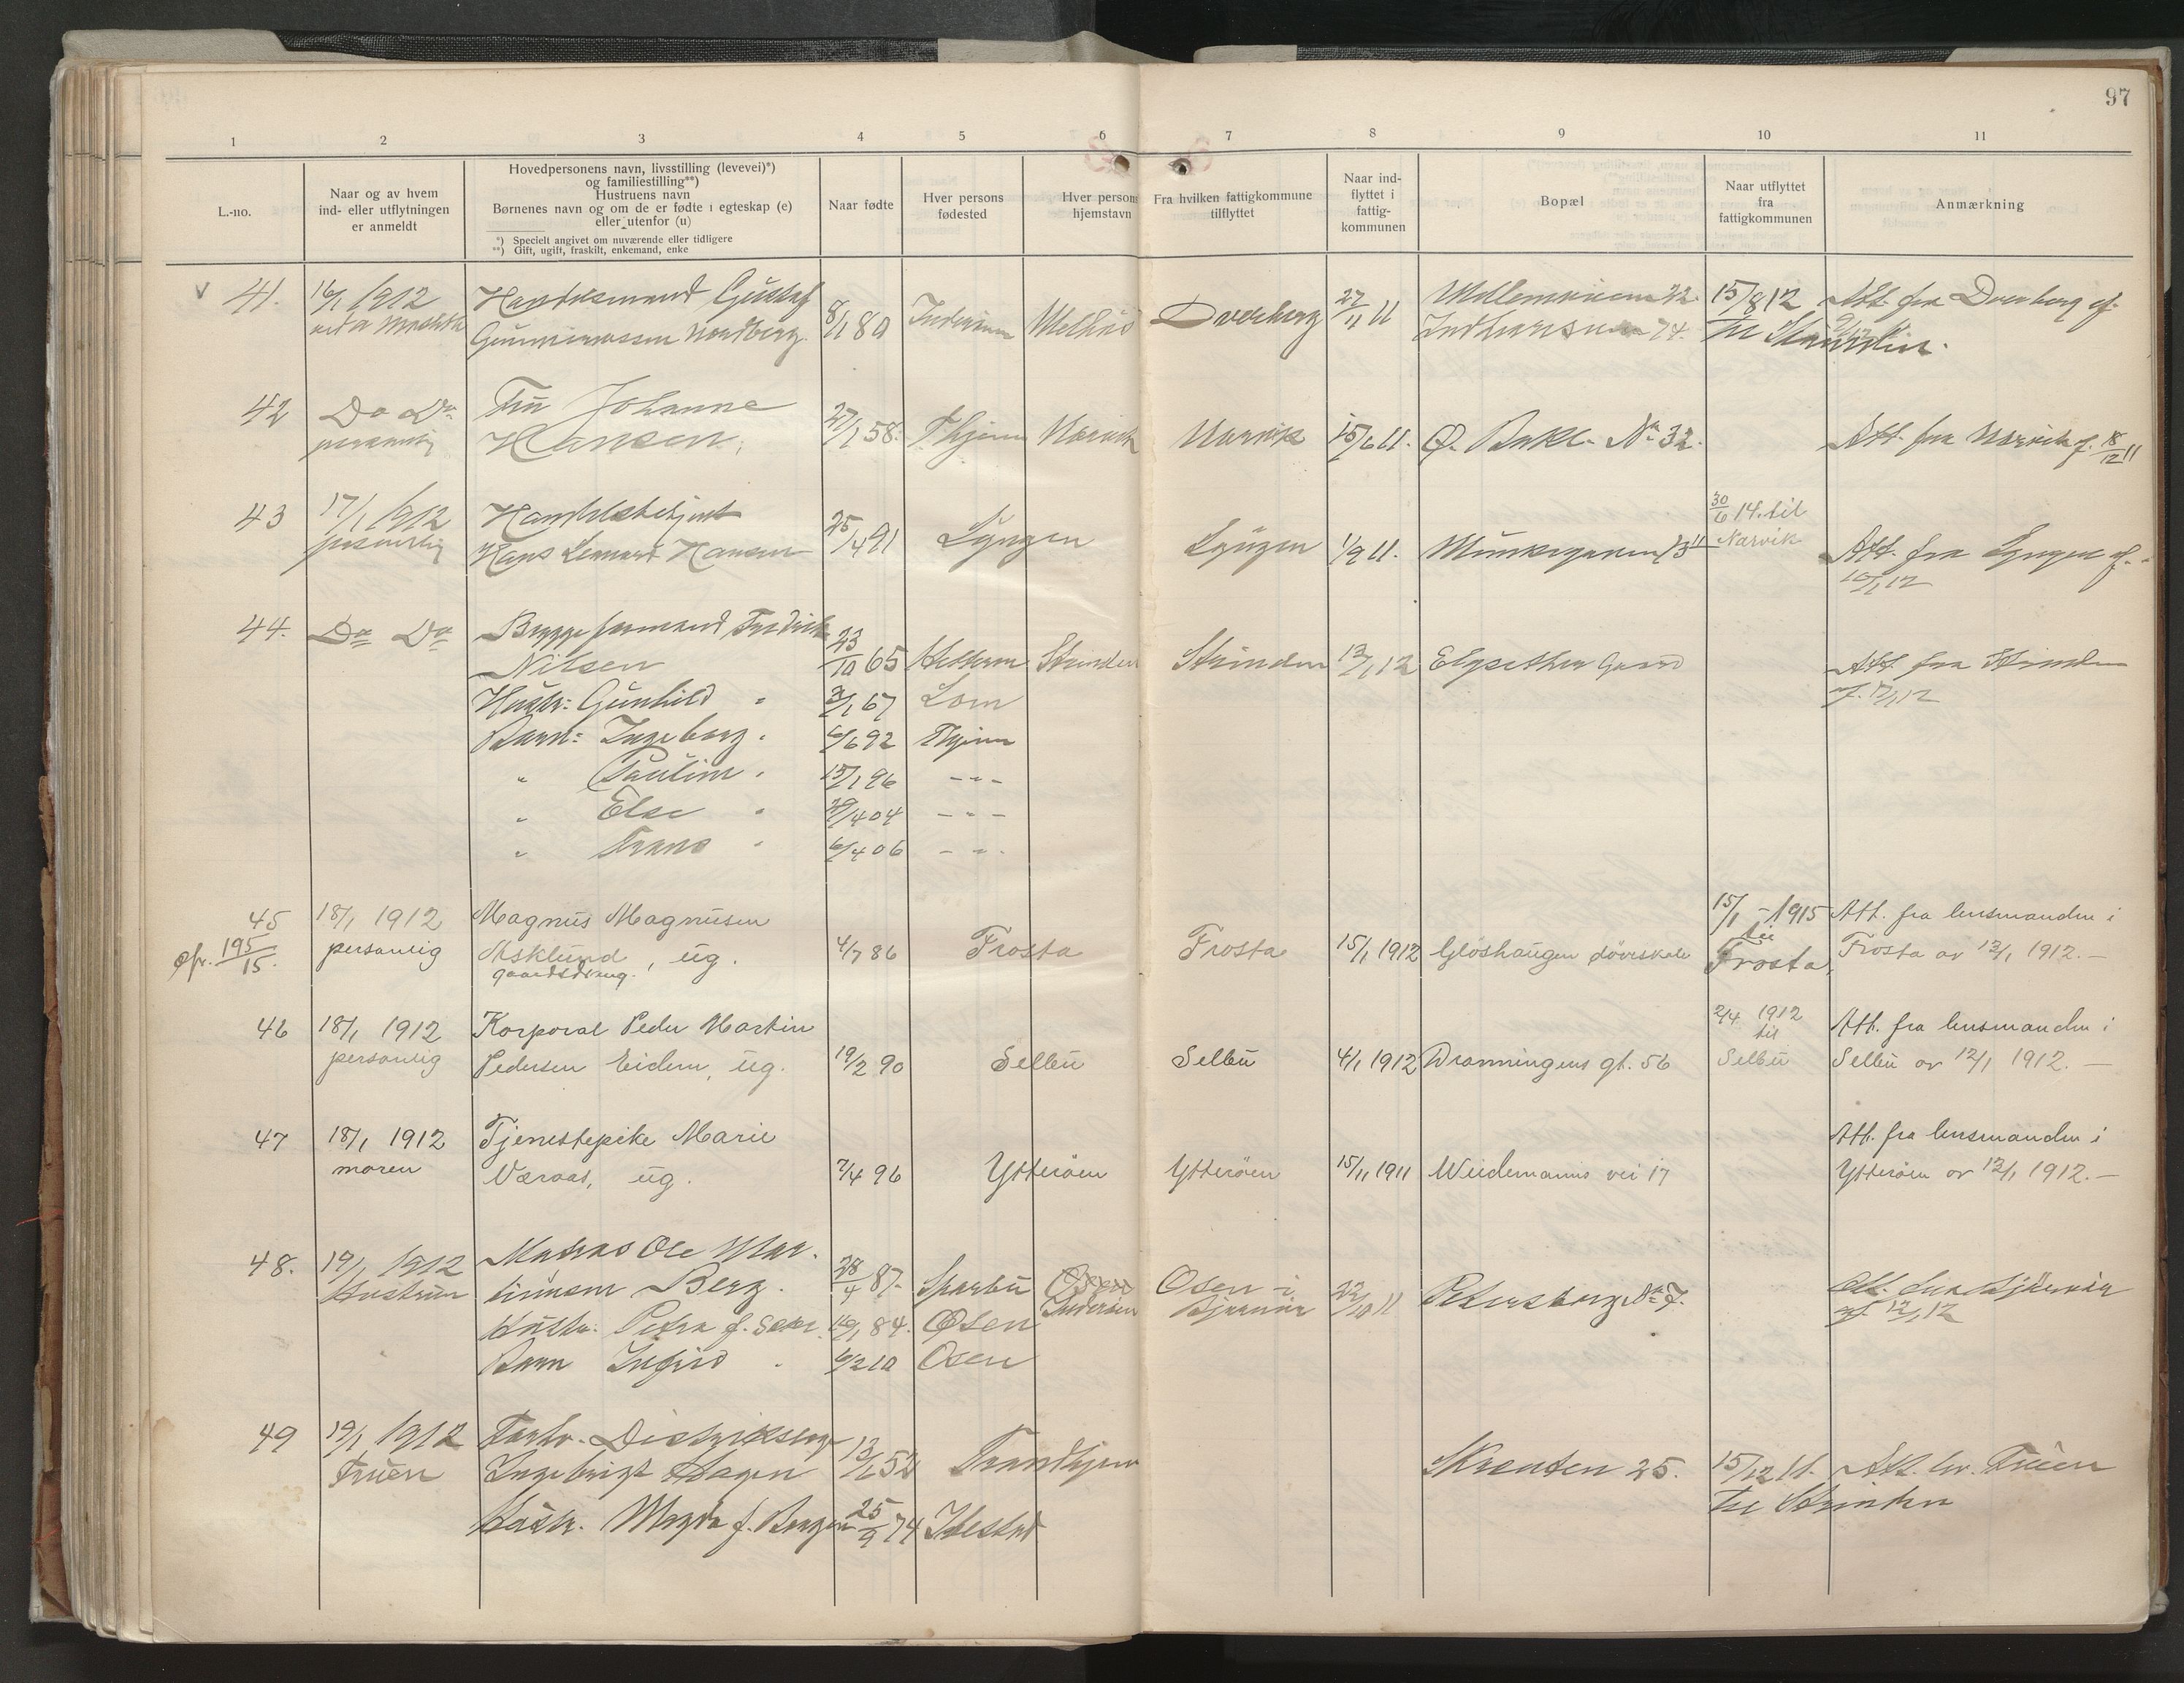 97
1 2 3 4 5 6 7 8 9 10 11
L.-no.
Naar og av hvem
ind- eller utflytningen
er anmeldt
Hovedpersonens navn, livsstilling (levevei)*)
og familiestilling**)
Hustruens navn
Børnenes navn og om de er fødte i egteskap (e)
eller utenfor (u)
*) Specielt angivet om nuværende eller tidligere
**) Gift, ugift, fraskilt, enkemand, enke
Naar fødte
Hver persons
fødested
Hver persons
hjemstavn
Fra hvilken fattigkommune
tilflyttet
Naar ind-
flyttet i
fattig-
kommunen
Bopæl
Naar utflyttet
fra
fattigkommunen
Anmærkning
v 41. 16/1 1912 Gustaf 8/1 80 Melhus Dverberg 27/11 11 22 15/8 12 Att. fra Dverberg af
Nordberg 74. til
42 Do Do Fru Johanne
personlig Hansen 27/1 58. Thjem Narvik Narvik 15/6 11. Ø. Bakl. No 32. Att. fra Narvik af 18/12 11
43 17/1 1912 Handelsbetjent 25/4 91 Lyngen Lyngen 1/9 11. Munkegaten 30/6 14. til
personlig Hans Hansen Narvik Att. fra Lyngen af
10/1 12
44. Do Do Bryggeformand Fredrik
Nilsen 23/10 65 Strinden Strinden 13/1 12 Elgsether Gaard Att. fra Strinden
Hustr: Gunhild " 67 Lom af. 12/1 12
Barn: Ingeborg " 6/6 92 Thjem
" Pauline " 15/1 96 - " -
" Else " 29/4 04 - " -
" Frans " 6/4 06 - " -
45 18/1 1912 Magnus Magnusen 15/1 - 1915 Att. fra lensmanden i
cfr. 195/15. personlig Asklund, ug. 4/7 86 Frosta Frosta 15/1 1912 Gløshaugen døveskole til Frosta Frosta av 12/1 1912. —
gaardsdreng.
46 18/1 1912 Korporal Peder Martin 2/4 1912 Att. fra lensmanden i
personlig Pedersen Eidem, ug. 19/2 90 Selbu Selbu 4/1 1912 Dronningens gt. 56 til Selbu Selbu av 12/1 1912. —
47 18/1 1912 Tjenestepike Marie Att. fra lensmanden i
moren Næraas, ug. 7/4 96 Ytterøen Ytterøen 15/11 1911 Weidemanns vei 17 Ytterøen av 12/1 1912. —
48. 19/1 1912 Matros Ole Mar-
Hustruen tinusen Berg. 28/4 87. Sparbu Osen Osen i
Inderøen Bjørnør 22/10 11 Petersborg No 7.
Hustr. Petra f. 16/1 84. Osen af. 12/1 12
Barn " 6/2 10 Osen
49 19/1 1912
Fruen Ingebrigt Hagen 13/1 52 Trondhjem 25. 15/12 11. Att. av. Fruen
til Strinden
Hustr. Magda f. Bergen 25/9 74 Ibestad